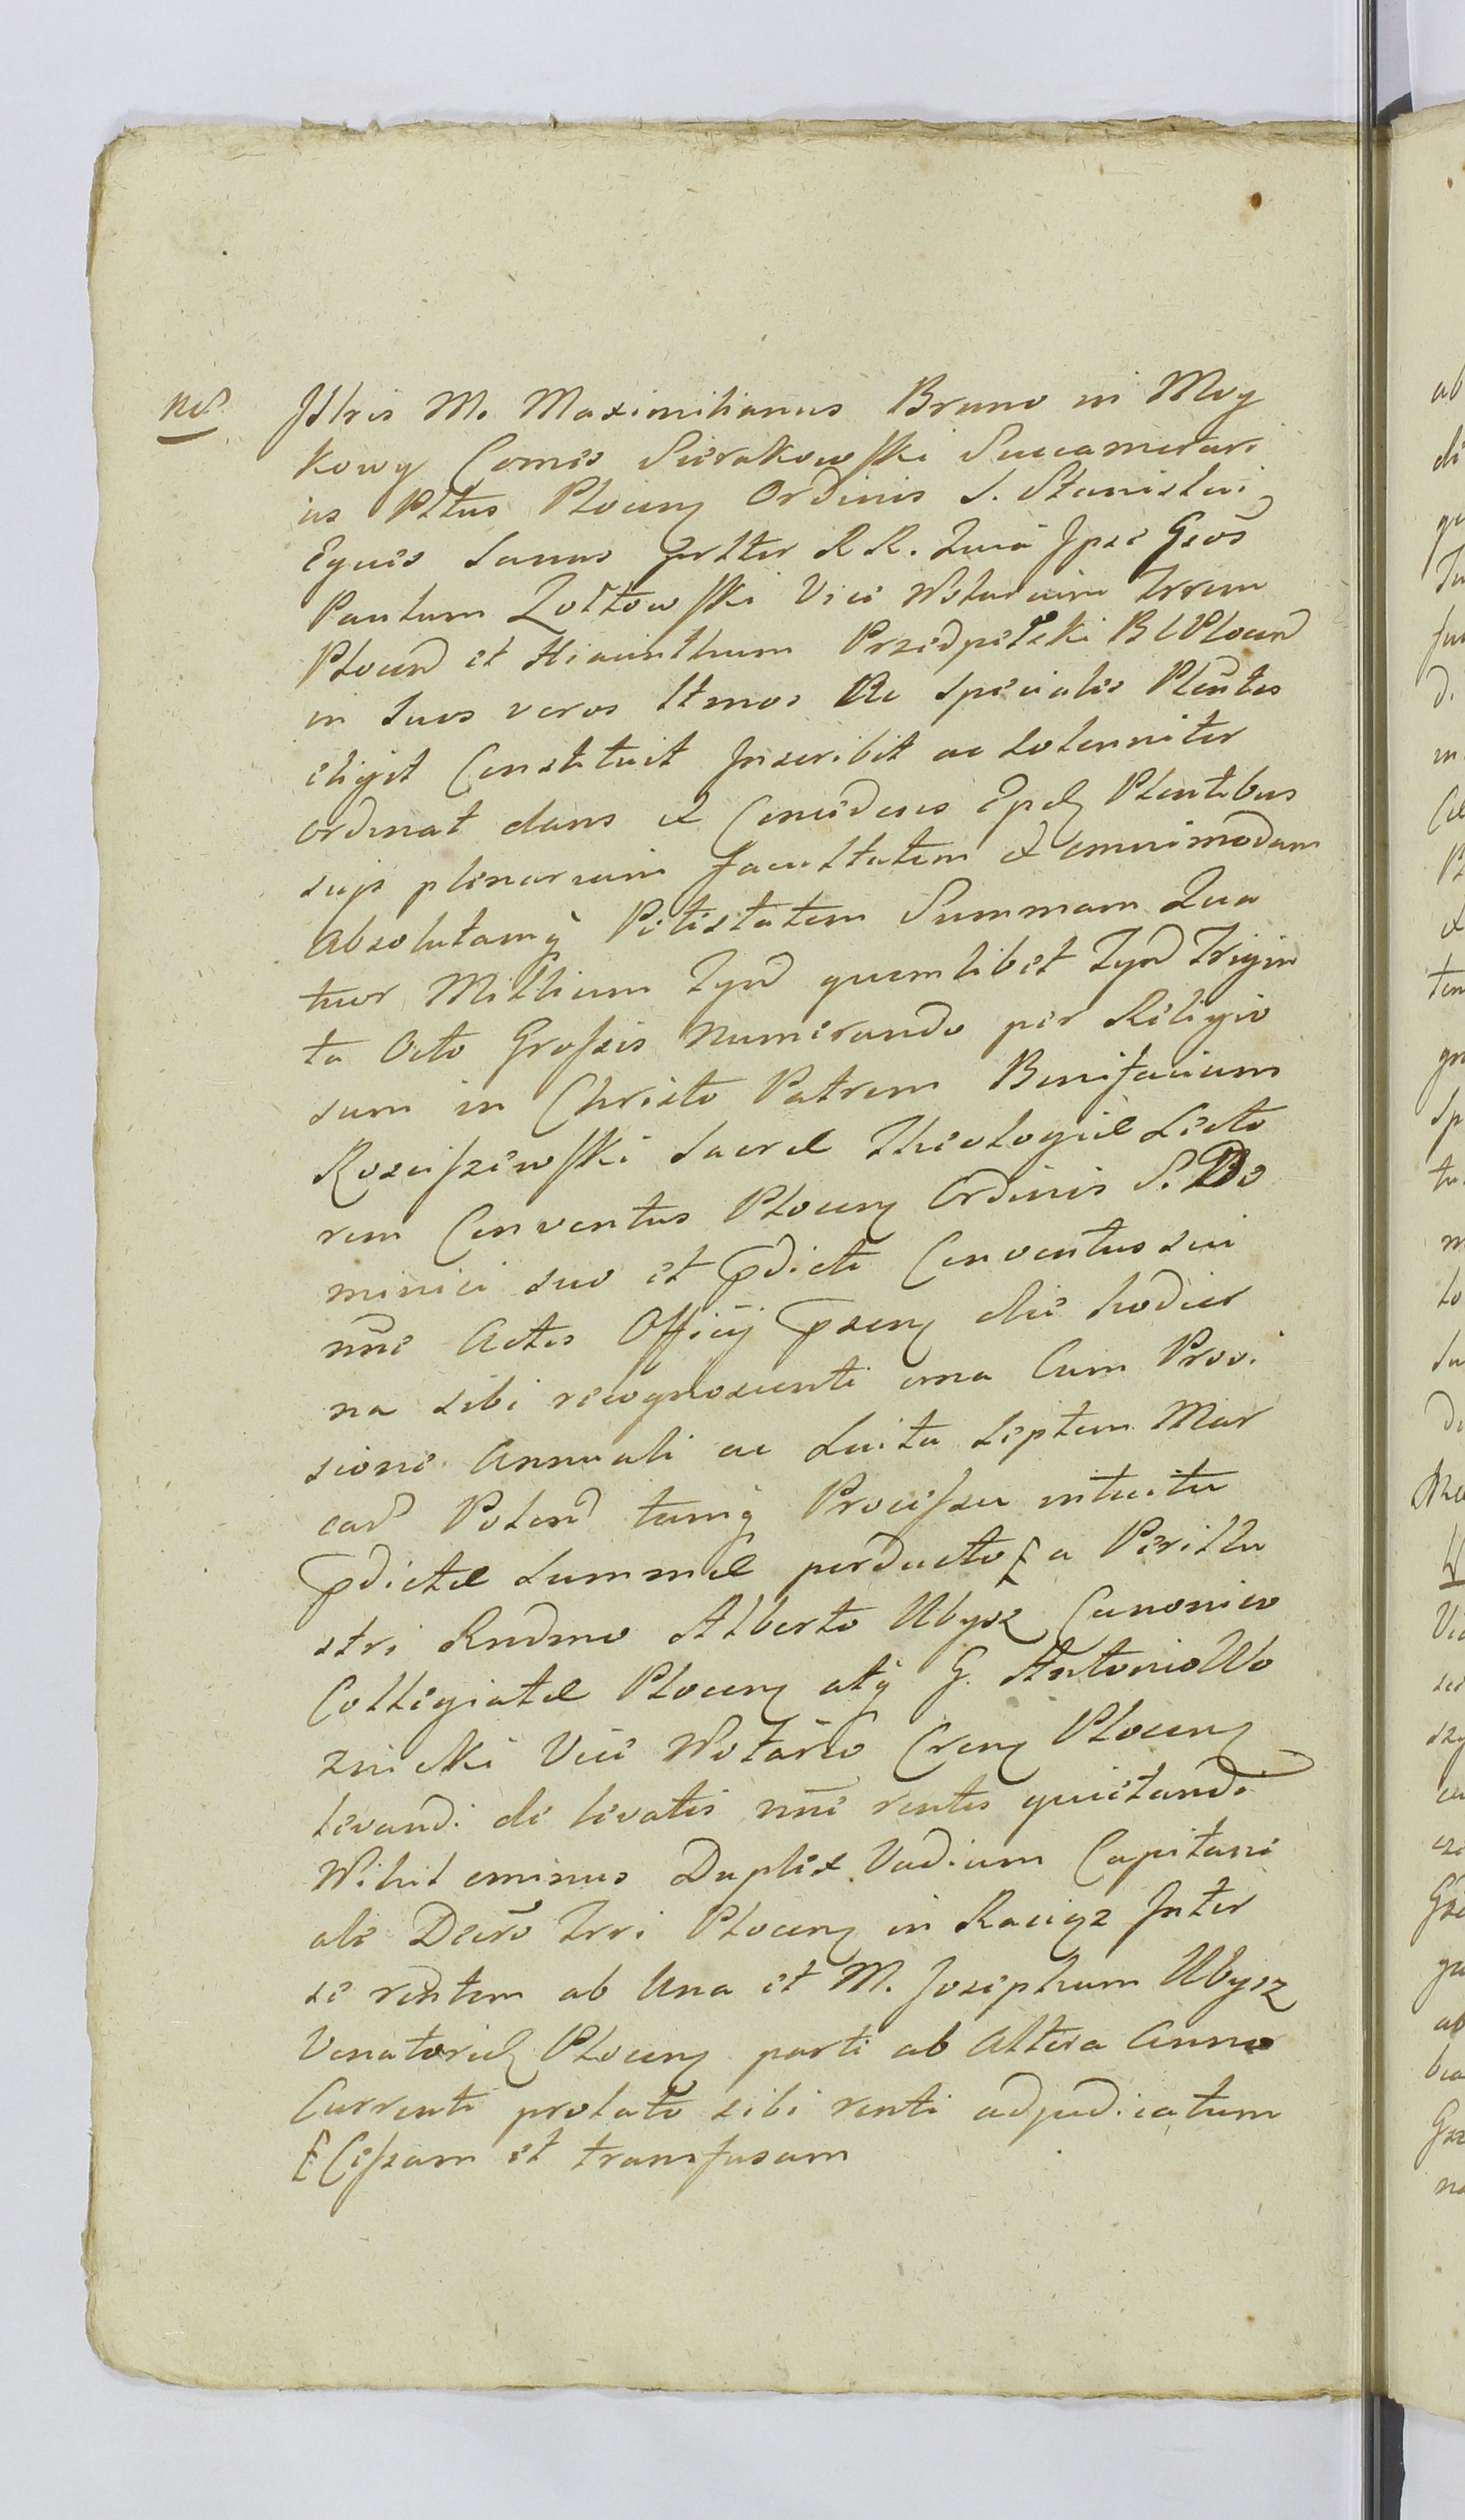 Illris M. Maximilianus Bruno in Moy
kowy Comes Sierakowski Succamerari
us Pltus Plocen Ordinis S. Stanislai
Eques Sanus prltter R R. Quia Ipse Gsos
Paulum Zołtowski Vice Notarium Trrum
Plocen et Hiacinthum Przedpełski B C Plocen
in Suos veros ltmos Ac speciales Plentes
eligit Constituit Inscribit ac solenniter
ordinat dans et Concedens Epdm Plentibus
suis plenariam facultatem et omnimodam
absolutamq Potestatem Summam Qua
tuor Millium Tynd quemlibet Tynd Trigin
ta Octo Grossis numerando per Religio
sum in Christo Patrem Bonifacium
Rosciszewski Sacrae Theologiae Lecto
rem Conventus Plocen Ordinis S. Do
minici suo et pdicti Conventus sui
nne Actis Officij psen die hodier
na sibi recognoscenti una Cum Provi
sione Annuali ac Luita Septem Mar
card Polond tumq Processu intuitu
pdictae Summae perducto a Perillu
stri Rndmo Alberto Ubysz Canonico
Collegiatae Plocen atq G. Antonio Wo
znicki Vice Notario Cren Plocen
levandi de levatis nne rentes quietandi
Nihil ominus Duplex Vadium Capitane
ale Decro Trri Plocen in Raciąz Inter
se rentem ab Una et M. Josephum Ubysz
Venatorid Plocen parte ab Altera Anno
Currenti prolato sibi renti adjudicatum
Cessam et transfusam